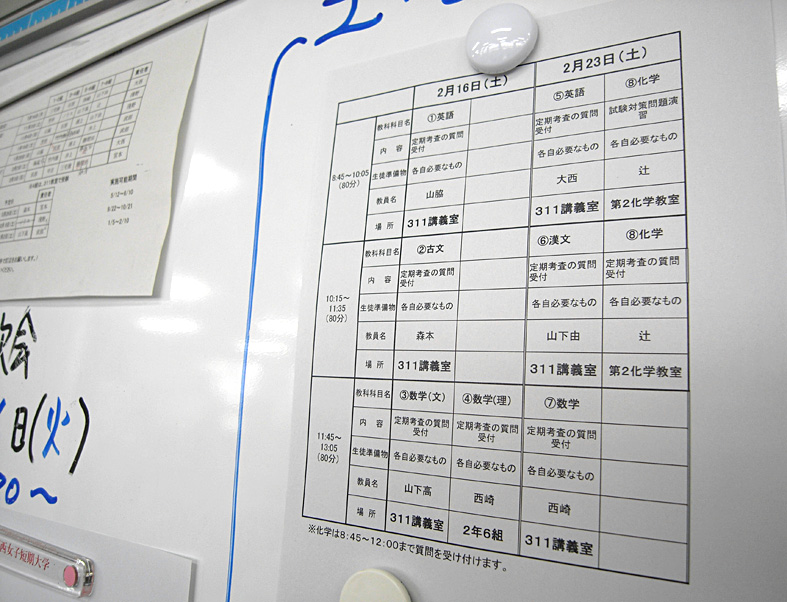 2月16日(土) 2月23日(土)
8:45～10:05
(80分)
教科科目名 ①英語 ⑤英語 ⑧化学
内 容 定期考査の質問受付 定期考査の質問受付 試験対策問題演習
生徒準備物 各自必要なもの 各自必要なもの 各自必要なもの
教員名 山脇 大西 辻
場 所 311講義室 311講義室 第2化学教室
10:15～
11:35
(80分)
教科科目名 ②古文 ⑥漢文 ⑧化学
内 容 定期考査の質問受付 定期考査の質問受付 定期考査の質問受付
生徒準備物 各自必要なもの 各自必要なもの 各自必要なもの
教員名 森本 山下由 辻
場 所 311講義室 311講義室 第2化学教室
11:45～
13:05
(80分)
教科科目名 ③数学(文) ④数学(理) ⑦数学
内 容 定期考査の質問受付 定期考査の質問受付 定期考査の質問受付
生徒準備物 各自必要なもの 各自必要なもの 各自必要なもの
教員名 山下高 西崎 西崎
場 所 311講義室 2年6組 311講義室
※化学は8:45～12:00まで質問を受け付けます。
実施可能期間
日(火)
西女子短期大学